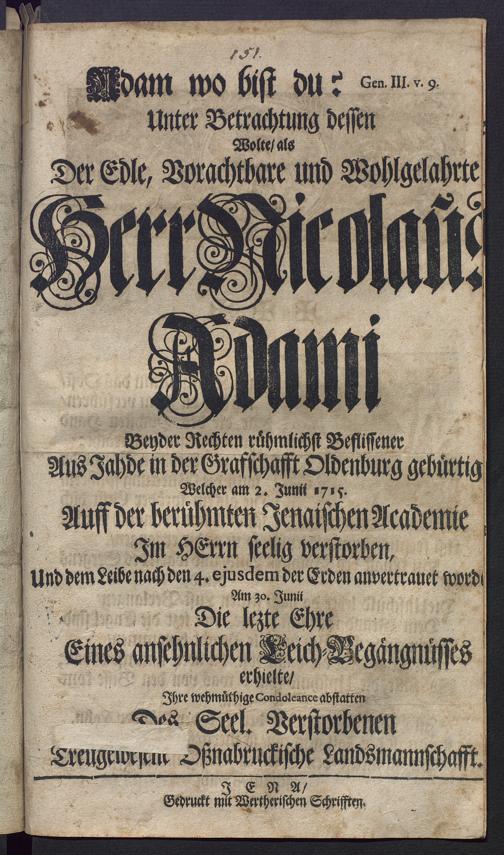 151.
Adam wo bist du? Gen. III. v. 9.
Unter Betrachtung dessen
Wolte/ als
Der Edle, Vorachtbare und Wohlgelahrte
Herr Nicolaus
Adami
Beyder Rechten rühmlichst Beflissener
Aus Jahde in der Grafschafft Oldenburg gebürtig
Welcher am 2. Junii 1715.
Auff der berühmten Jenaischen Academie
Im HErrn seelig verstorben,
Und dem Leibe nach den 4. ejusdem der Erden anvertrauet word
Am 30. Junii
Die lezte Ehre
Eines ansehnlichen Leich-Begängnüsses
erhielte/
Ihre wehmüthige Condoleance abstatten
Des Seel. Verstorbenen
Treugewesene Oßnabruckische Landsmannschafft.
JENA/
Gedruckt mit Wertherischen Schrifften.